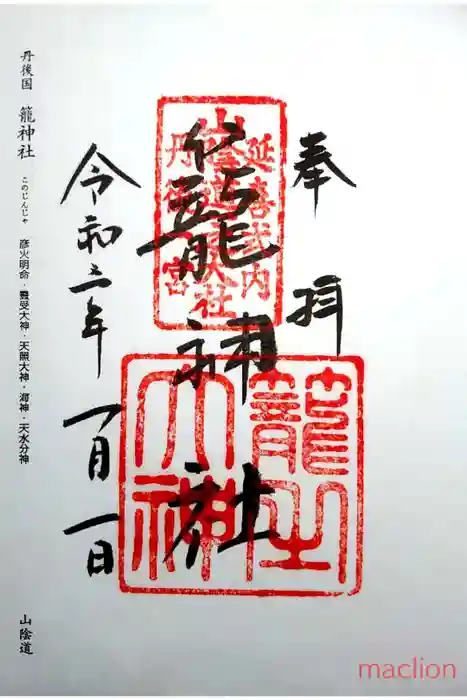 奉拝
延喜式内
籠神社
丹後一宮
籠之
大神
令和二年一月一日
丹後国 籠神社 このじんじゃ 彦火明命・豊受大神・天照大神・海神・天水分神 山陰道
maclion